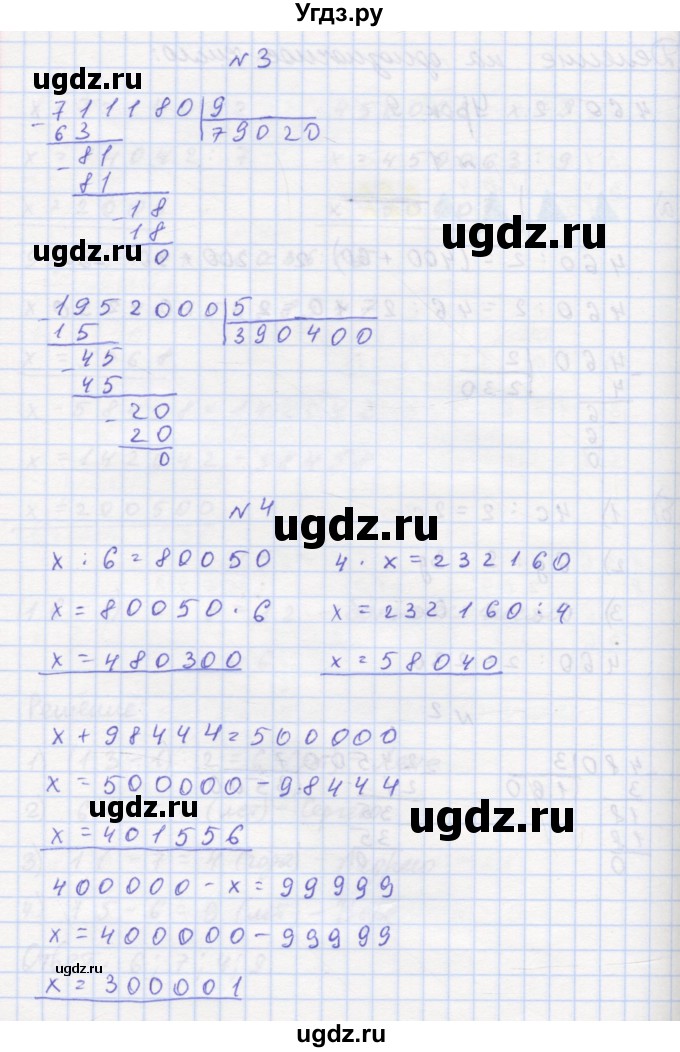 Угдз.ру
ugdz.ru
N 3
711180 | 9
63 79020
81
81
18
18
0
ugdz.ru
ugdz.ru
1952000 | 5
15 390400
45
45
20
20
0
N 4
ugdz.ru
x : 6 = 80050
x = 80050 · 6
x = 480300
4 · x = 232160
x = 232160 : 4
x = 58040
x + 98444 = 500000
x = 500000 - 98444
x = 401556
ugdz.ru
ugdz.ru
400000 - x = 99999
x = 400000 - 99999
x = 300001
ugdz.ru
ugdz.ru